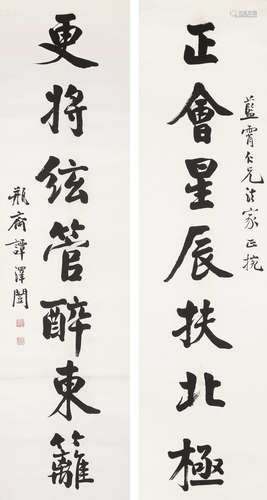 正會星辰扶北極
藍霄仁兄法家正捥
更將絃管醉東籬
瓶齋譚澤闓